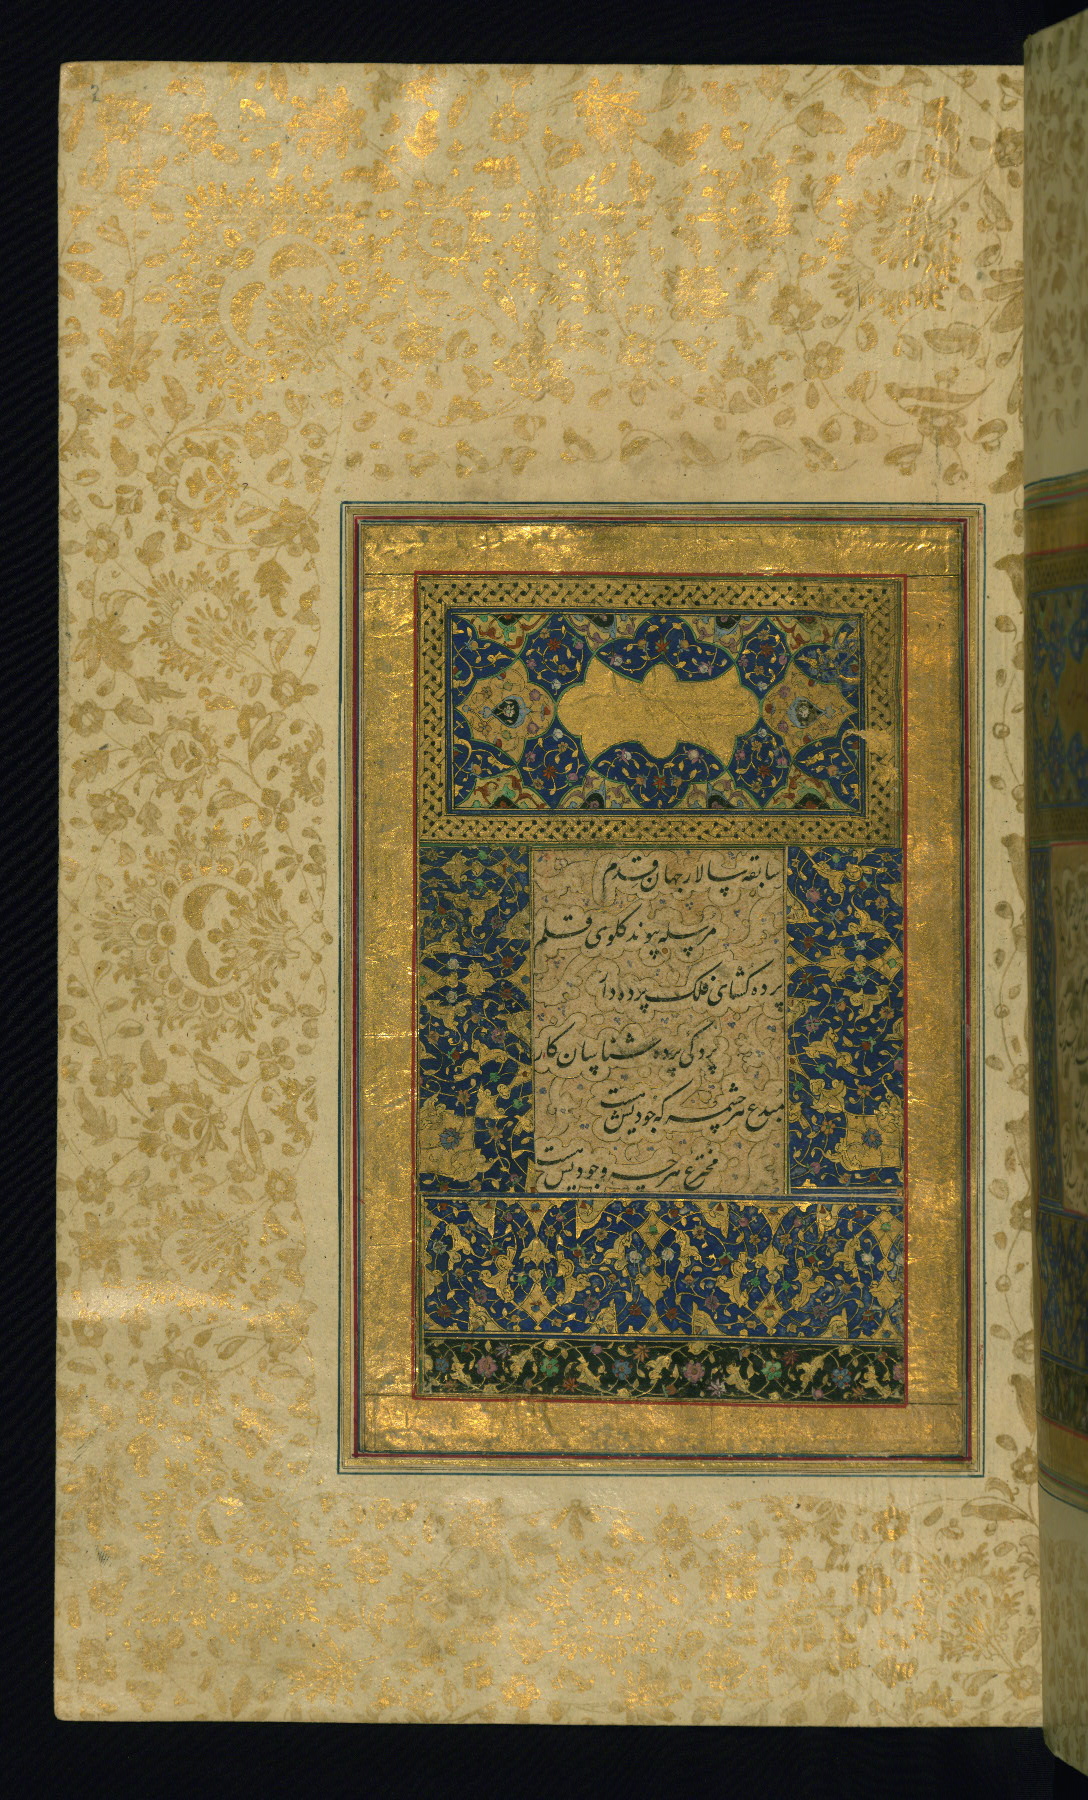 سابقه سالار جهان قدم
مرسله پیوند گلوی قلم
پرده گشای فلک پرده دار
پردگی پرده شناسان کار
مبدع هر چشمه که جودیش هست
مخترع هر چه وجودیش هست